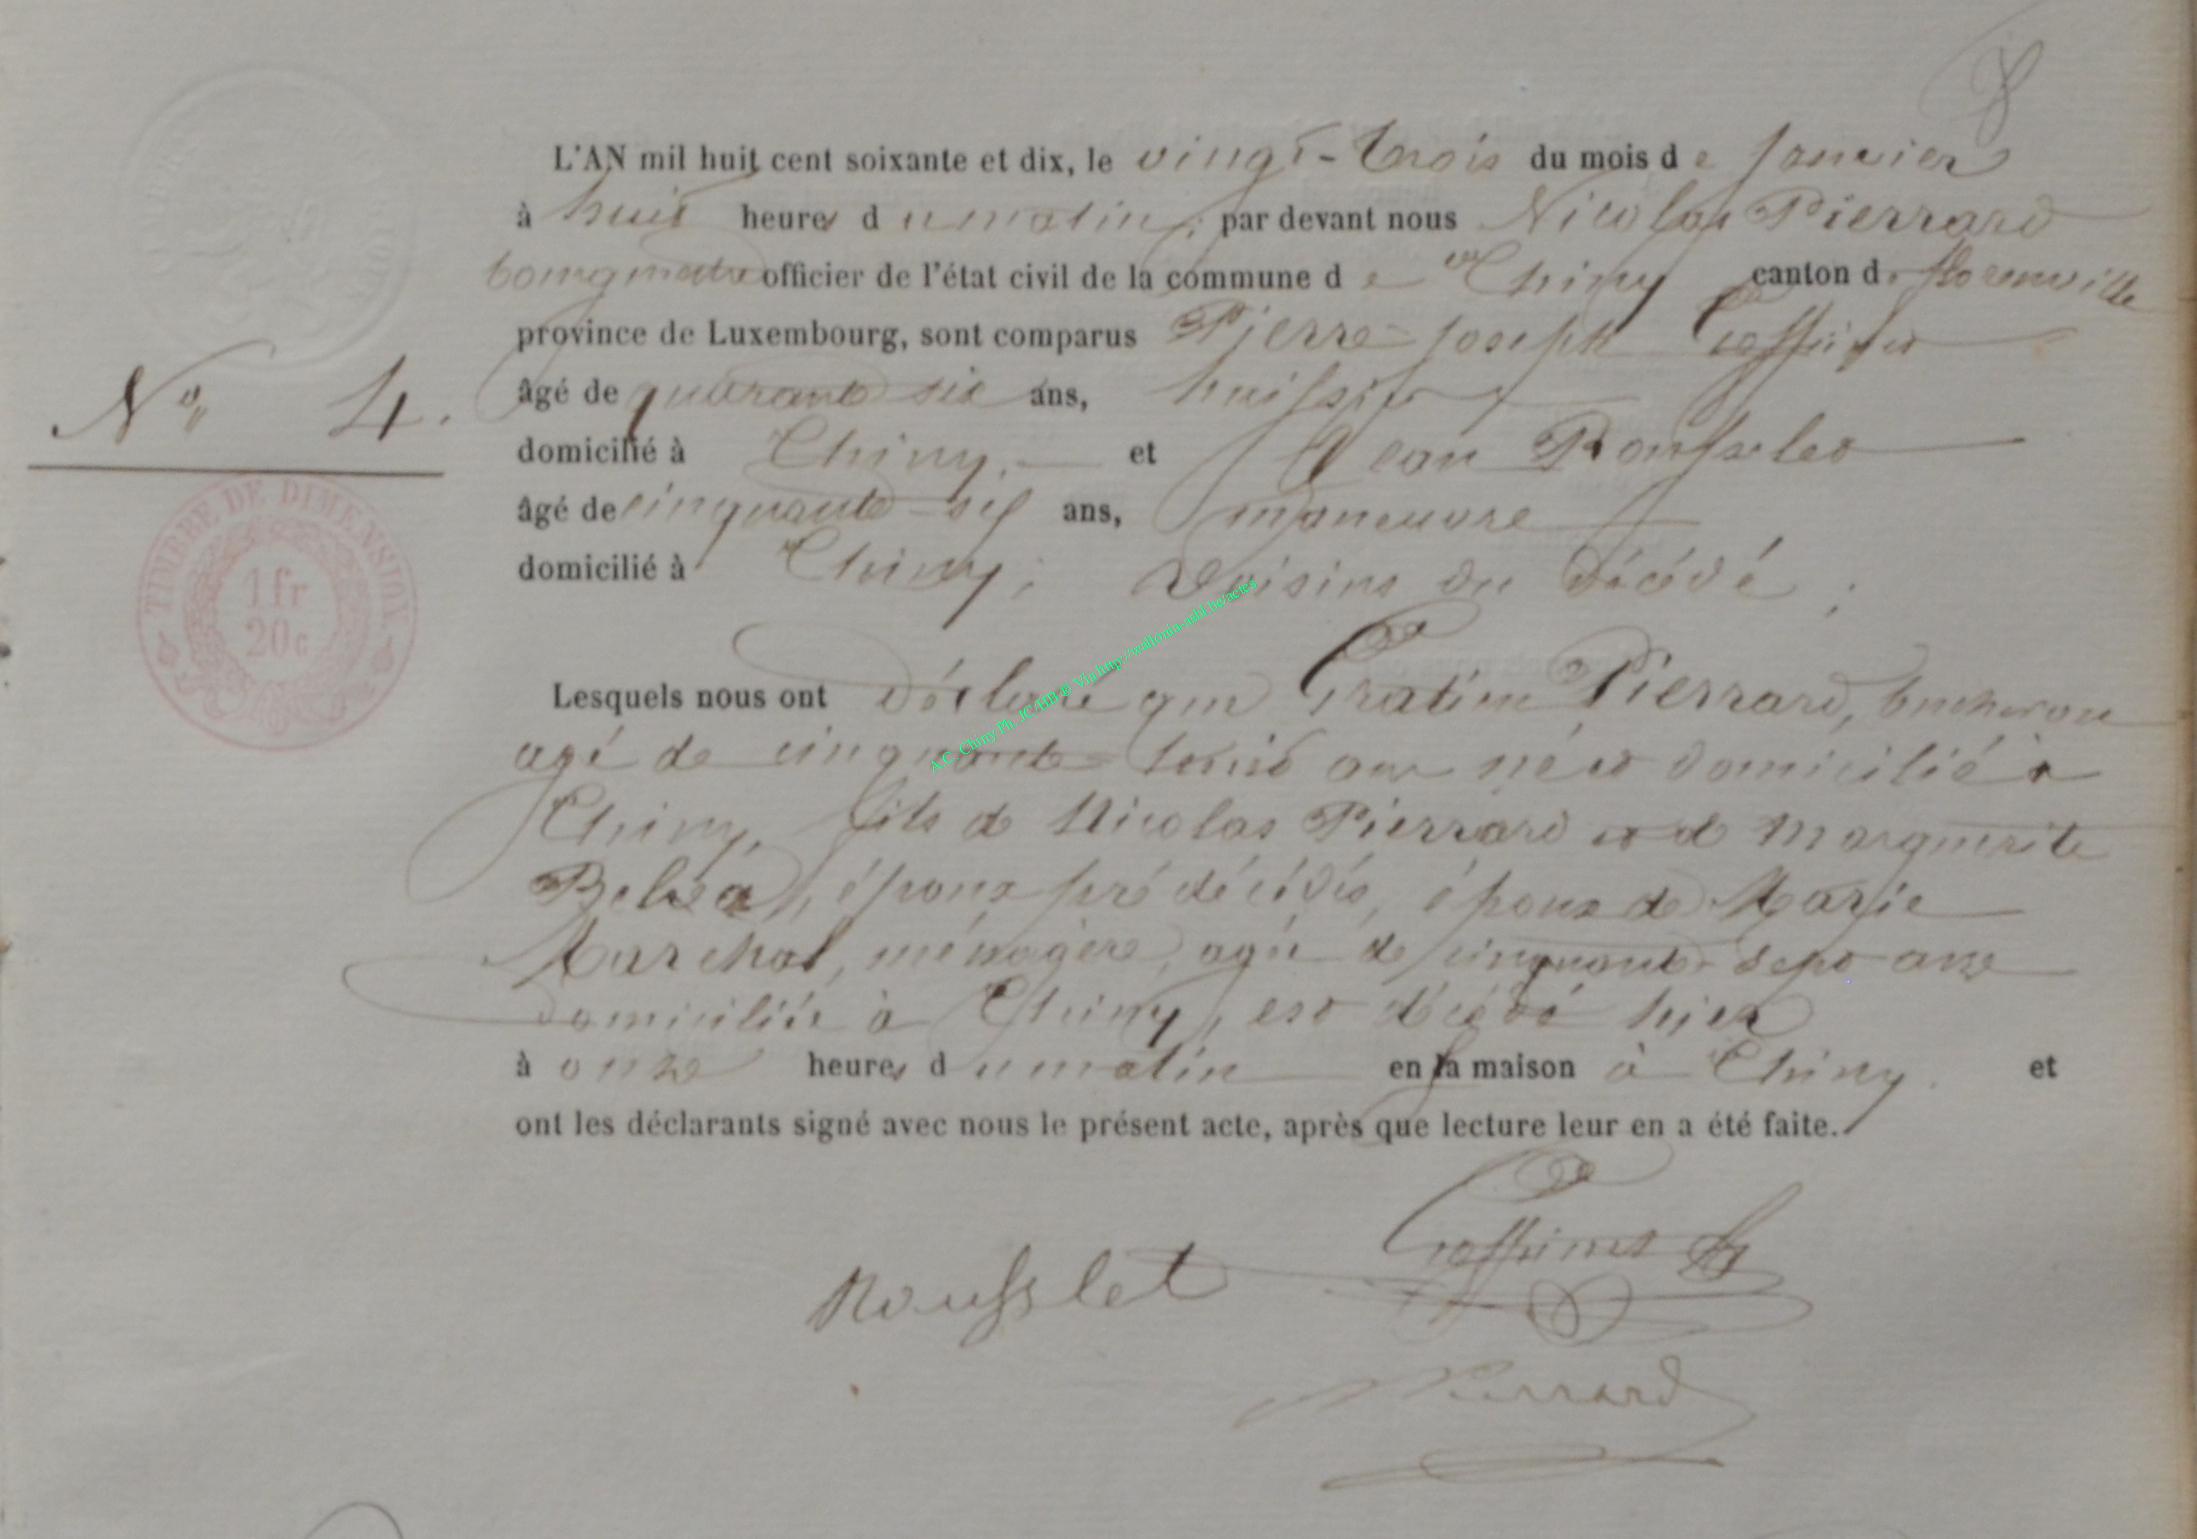 L'AN mil huit cent soixante et dix, le vingt-trois du mois de Janvier
à huit heures du matin, par devant nous Nicolas Pierrard
bourgmestre officier de l'état civil de la commune de Chiny canton de florenville
province de Luxembourg, sont comparus Pierre-Joseph
âgé de quarante six ans, huissier
domicilié à Chiny, et Jean Rousselet
âgé de cinquante-six ans, manœuvre
domicilié à Chiny; voisins du décédé;
Lesquels nous ont déclaré que Gratien Pierrard, bucheron
agé de cinquante-trois ans né et domicilié à
Chiny, fils de Nicolas Pierrard et de Marguerite
époux prédécédés, époux de Marie
Marchal, ménagère, agée de cinquante-sept ans
domiciliée à Chiny, est décédé hier
à onze heures du matin en sa maison à Chiny. et
ont les déclarants signé avec nous le présent acte, après que lecture leur en a été faite.
N° 4.
TIMBRE DE DIMENSION
1 fr
20c
A.C. Chiny Ph. JC/HB © Via http://wallonia-asbl.be/actes
Rousslet
Pierrard